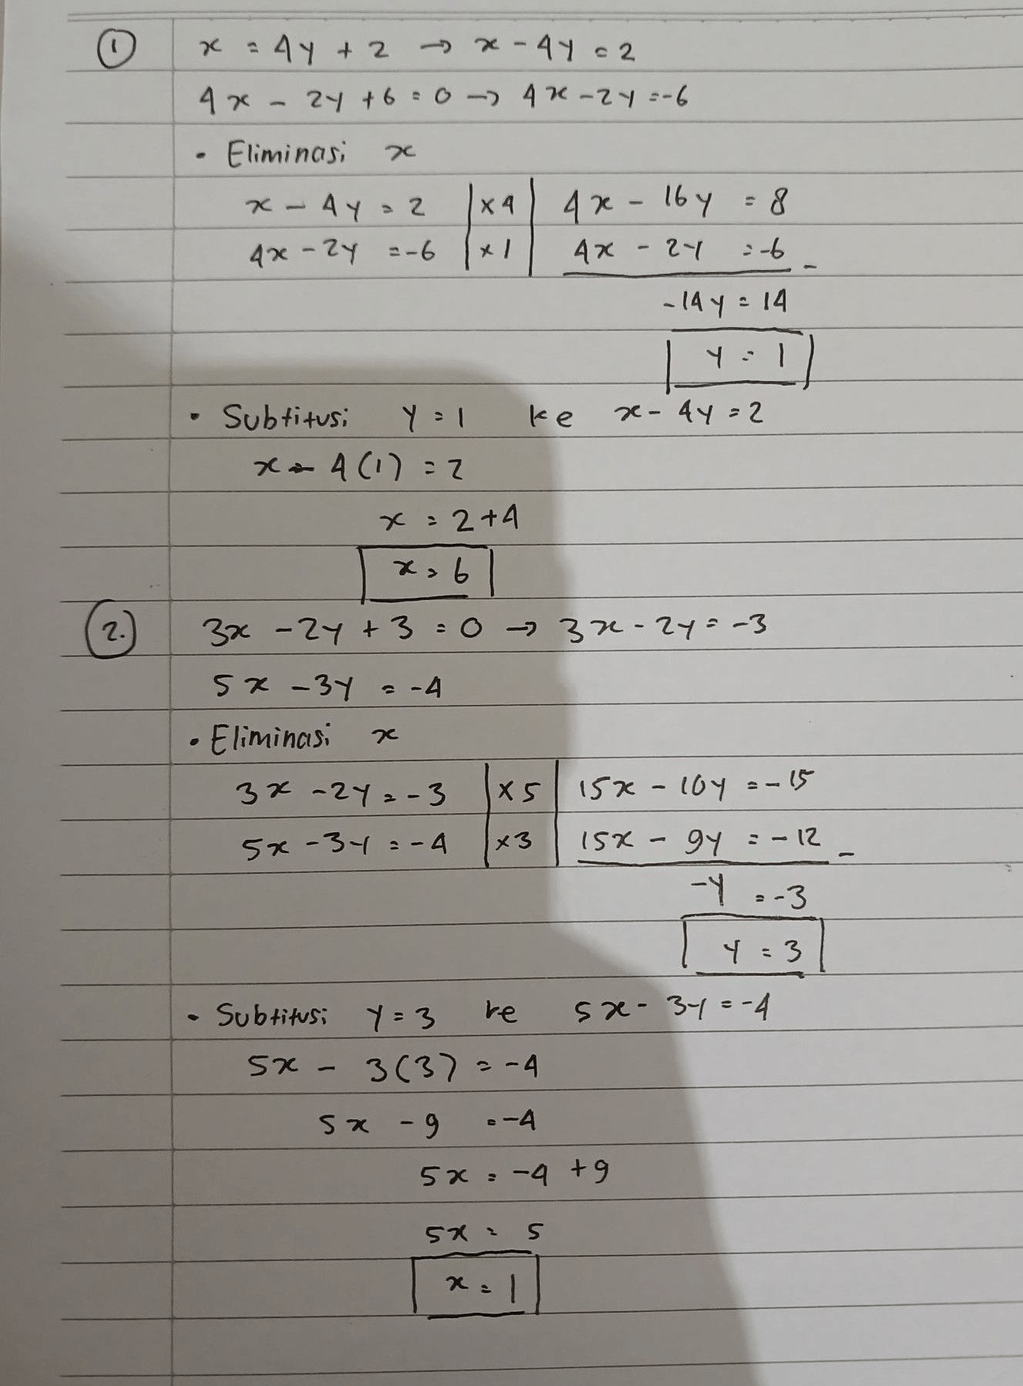 ① x = 4y + 2 → x - 4y = 2
4x - 2y + 6 = 0 → 4x - 2y = -6
• Eliminasi x
x - 4y = 2 | x4 | 4x - 16y = 8
4x - 2y = -6 | x1 | 4x - 2y = -6 -
-14y = 14
y = 1
• Subtitusi y = 1 ke x - 4y = 2
x - 4(1) = 2
x = 2 + 4
x = 6
2. 3x - 2y + 3 = 0 → 3x - 2y = -3
5x - 3y = -4
• Eliminasi x
3x - 2y = -3 | x5 | 15x - 10y = -15
5x - 3y = -4 | x3 | 15x - 9y = -12 -
-y = -3
y = 3
• Subtitusi y = 3 ke 5x - 3y = -4
5x - 3(3) = -4
5x - 9 = -4
5x = -4 + 9
5x = 5
x = 1